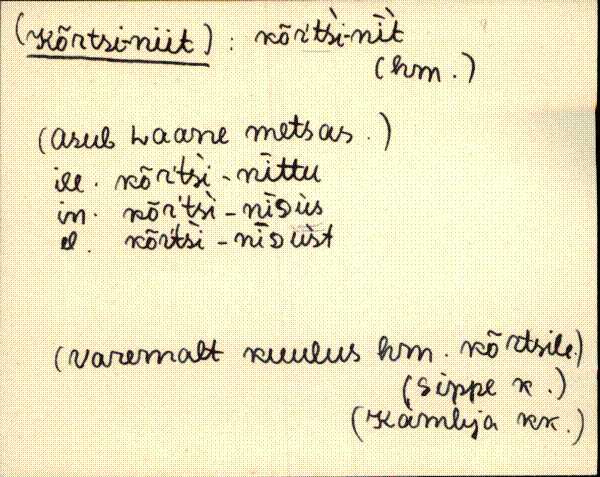 (Kõrtsi-niit) : kõr'tsì-nìt̀
(hm.)
(asub Laane metsas.)
ill. kõr'tsì-nīttu
in. kõr'tsì-nīᴅùs
el. kõr'tsì-nīᴅùst
(varemalt kuulus hm. kõrtsile.)
(Sippe k.)
(Kambja kk.)